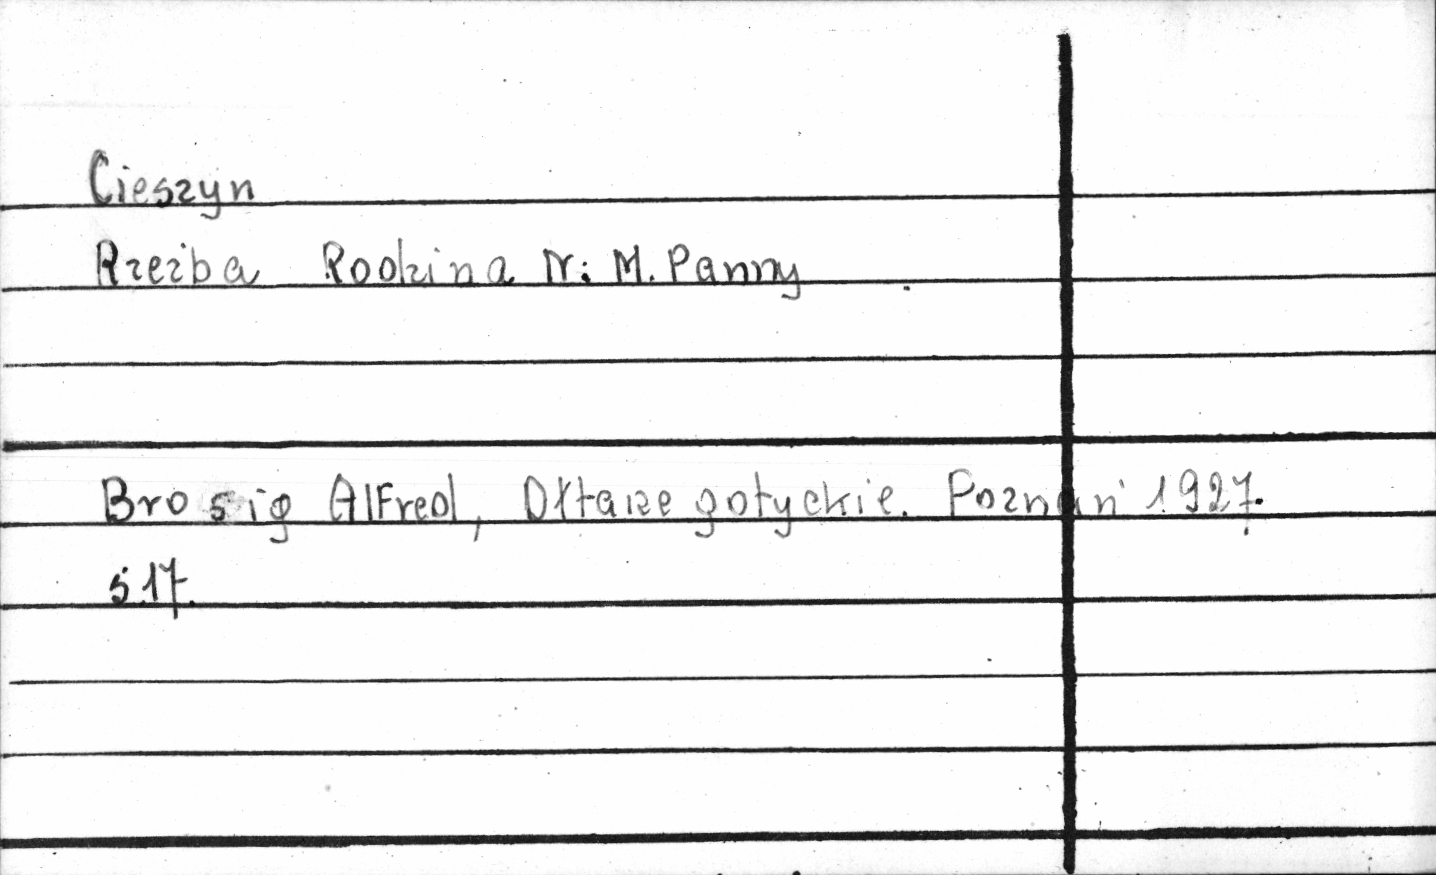 Cieszyn
Rzeźba Rodzina N. M. Panny
Brosig Alfred, Ołtarze gotyckie. Poznań 1927.
s.17.